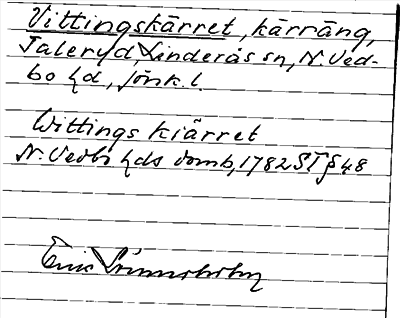 Vittingskärret, kärräng,
Taleryd, Linderås sn, N. Ved-
bo hd, Jönk. l.
Wittings kiärret
N. Vedbo hds domb, 1782 ST § 48
Eric